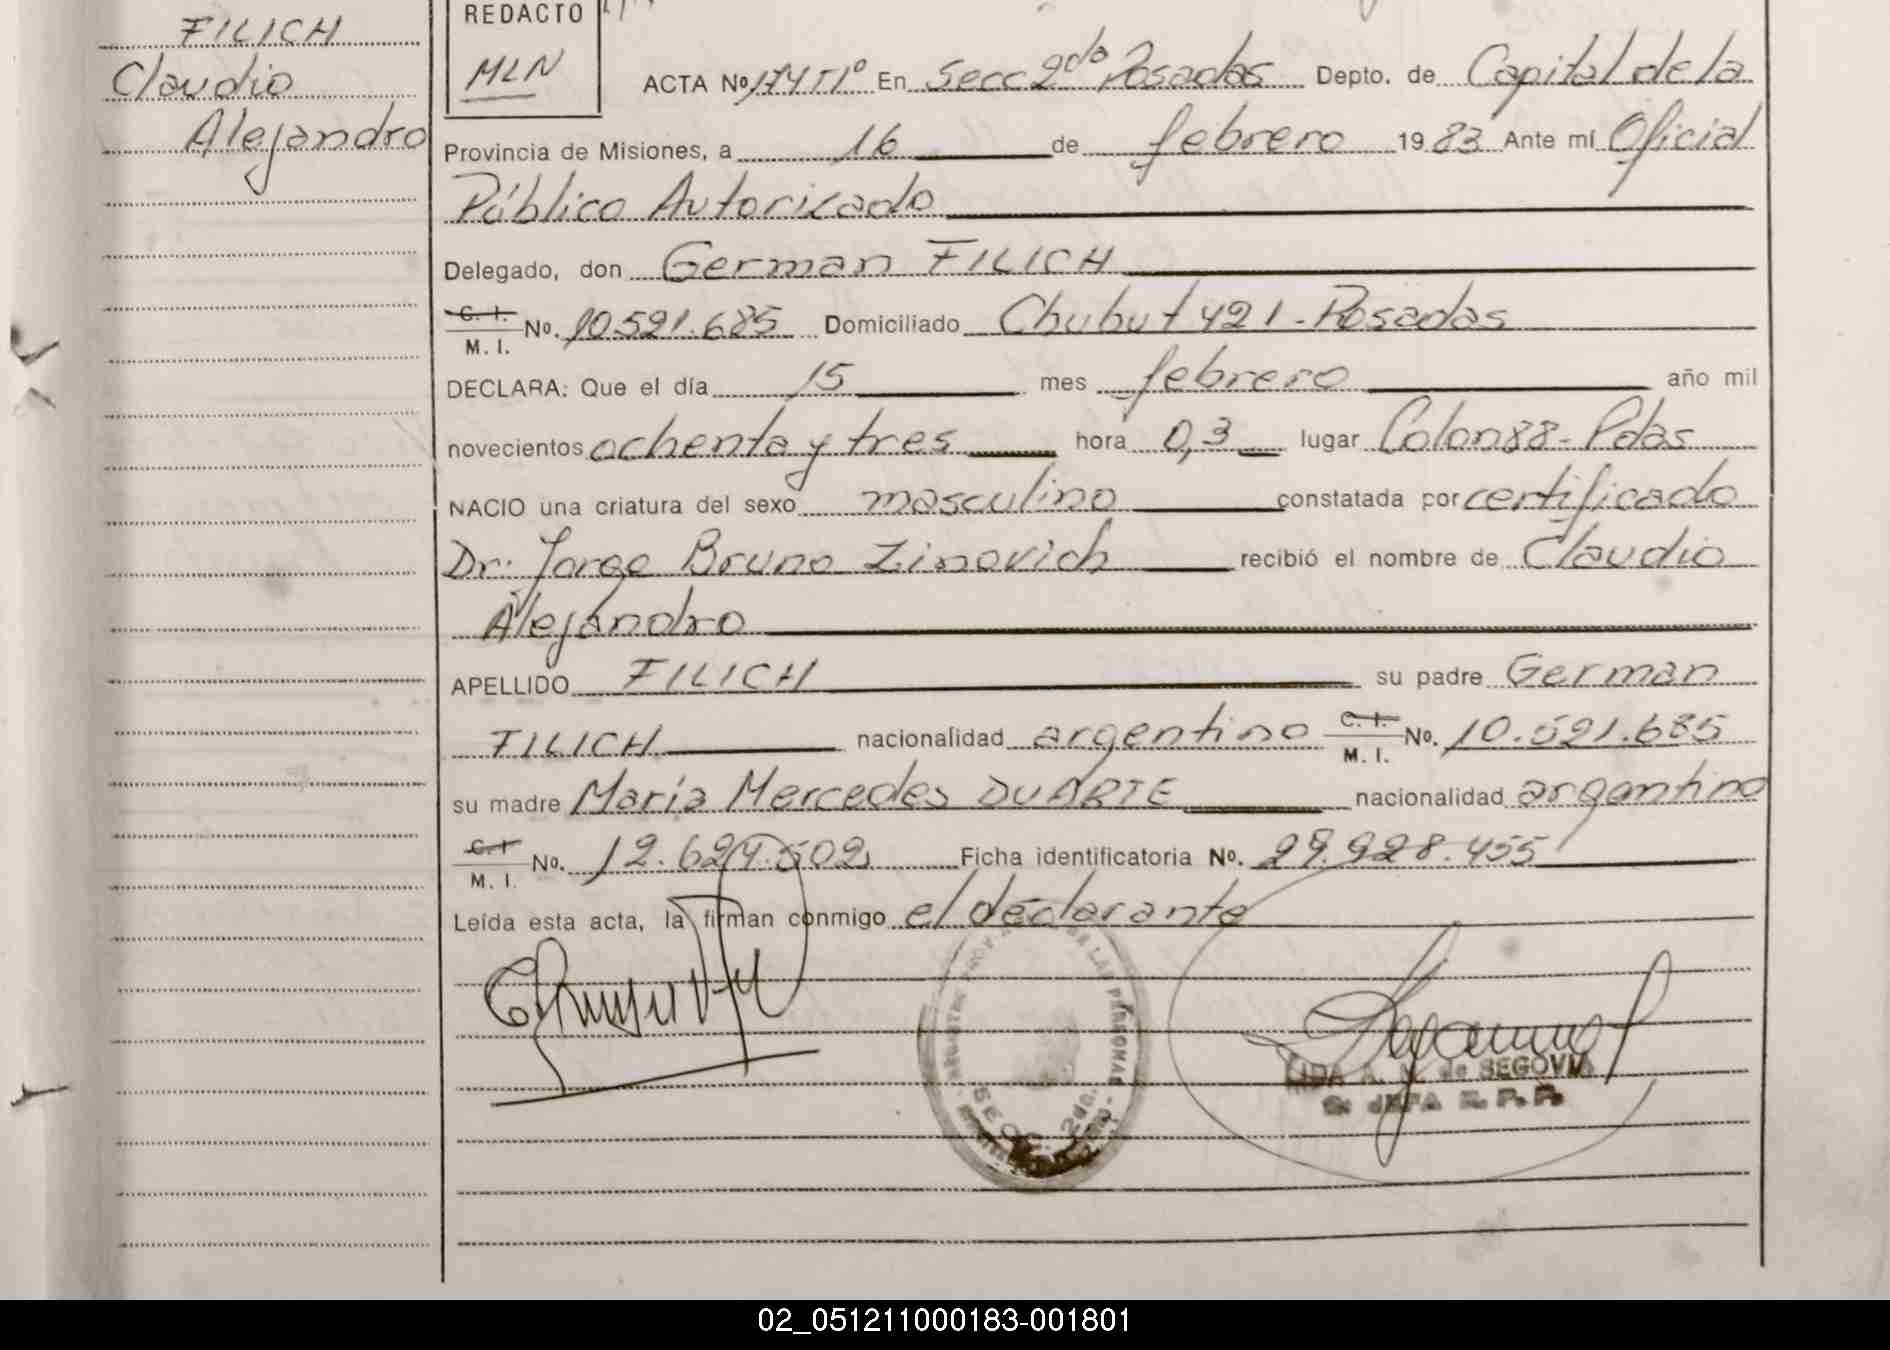 FILICH
Claudio
Alejandro
REDACTO
MLN
ACTA No 174 TIº En Secc 2do Posadas Depto. de Capital de la
Provincia de Misiones, a 16 de febrero 1983 Ante mí Oficial
Público Autoricado
Delegado, don German FILICH
C. I. M. I. No. 10.521.685 Domiciliado Chubut 421 - Posadas
DECLARA: Que el día 15 mes febrero año mil
novecientos ochenta y tres hora 0,3 lugar Colon 88 - Pdas
NACIO una criatura del sexo masculino constatada por certificado
Dr. Jorge Bruno Zinovich recibió el nombre de Claudio
Alejandro
APELLIDO FILICH su padre German
FILICH nacionalidad argentino C. I. M. I. No. 10.521.685
su madre María Mercedes DUARTE nacionalidad argentino
C. I. M. I. No. 12.624.502 Ficha identificatoria No. 29.928.455
Leída esta acta, la firman conmigo el declarante
DE LAS PERSONAS
SECC. 2da.
A. de SEGOVIA
JEFA R. P. P.
02_051211000183-001801